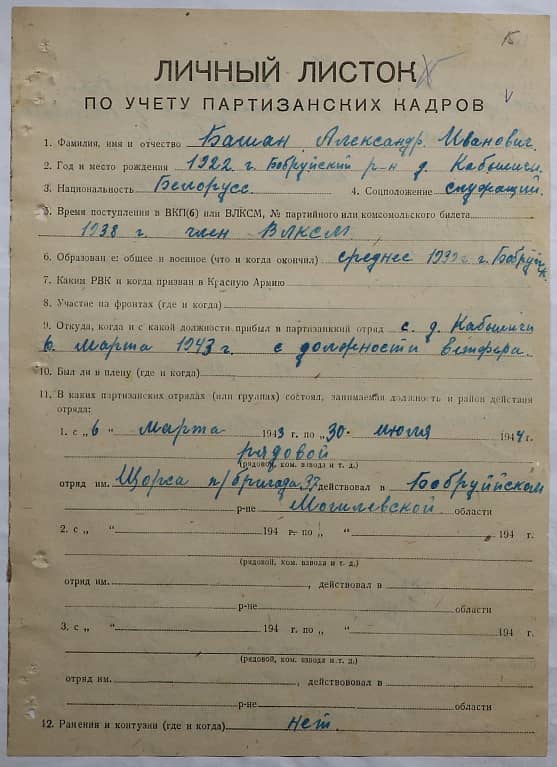 15
ЛИЧНЫЙ ЛИСТОК
ПО УЧЕТУ ПАРТИЗАНСКИХ КАДРОВ
1. Фамилия, имя и отчество Башан Александр Иванович.
2. Год и место рождения 1922 г. Бобруйский р-н д. Кабышичи
3. Национальность Белорусс. 4. Соцположение служащий.
5. Время поступления в ВКП(б) или ВЛКСМ, № партийного или комсомольского билета
1938 г. член ВЛКСМ
6. Образован е: общее и военное (что и когда окончил) среднее 1939 г. г. Бобруйск
7. Каким РВК и когда призван в Красную Армию
8. Участие на фронтах (где и когда)
9. Откуда, когда и с какой должности прибыл в партизанккий отряд с. д. Кабышичи
6. марта 1943 г. с должности ветфера.
10. Был ли в плену (где и когда)
11. В каких партизанских отрядах (или группах) состоял, занимаемая должность и район действия
отряда:
1. с „6 “ марта 1943 г. по „30. июля 1944 г.
рядовой
(рядовой, ком. взвода и т. д.)
отряд им. Щорса п/бригада 37 действовал в Бобруйском
р-не Могилевской области
2. с „ “ 194 г. по „ “ 194 г.
(рядовой, ком. взвода и т. д.)
отряд им. , действовал в
р-не области
3. с „ “ 194 г. по „ “ 194 г.
(рядовой, ком. взвода и т. д.)
отряд им. , действововал в
р-не области
12. Ранения и контузии (где и когда) нет.